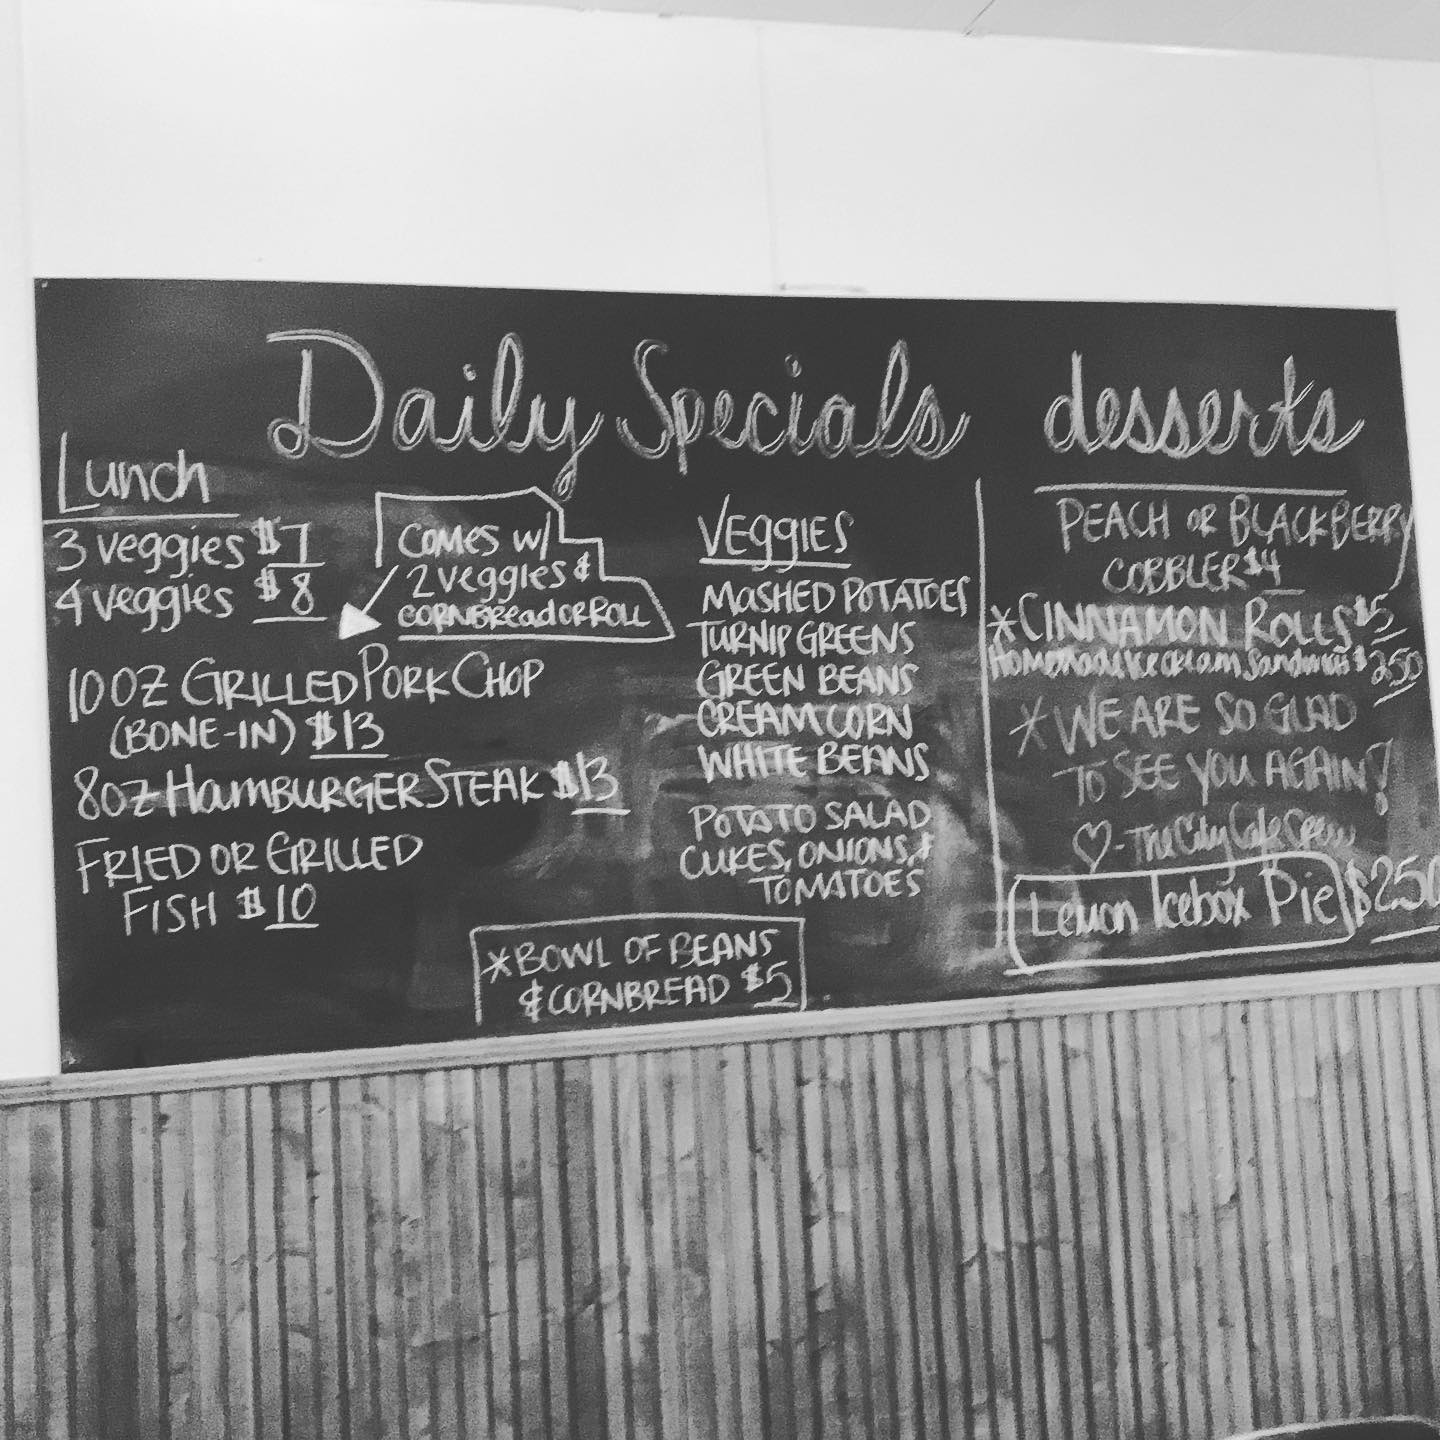 Daily Specials
Lunch
3 veggies $7
4 veggies $8
COMES w/
2 veggies &
CORNBREAD OR ROLL
10OZ GRILLED PORK CHOP
(BONE-IN) $13
8OZ HAMBURGER STEAK $13
FRIED OR GRILLED
FISH $10
VEGGIES
MASHED POTATOES
TURNIP GREENS
GREEN BEANS
CREAM CORN
WHITE BEANS
POTATO SALAD
CUKES, ONIONS, &
TOMATOES
*BOWL OF BEANS
& CORNBREAD $5
desserts
PEACH OR BLACKBERRY
COBBLER $4
*CINNAMON ROLLS $5
Homemade Ice cream Sandwich $2.50
*WE ARE SO GLAD
TO SEE YOU AGAIN!
♡-The City Cafe Crew
Lemon Icebox Pie $250